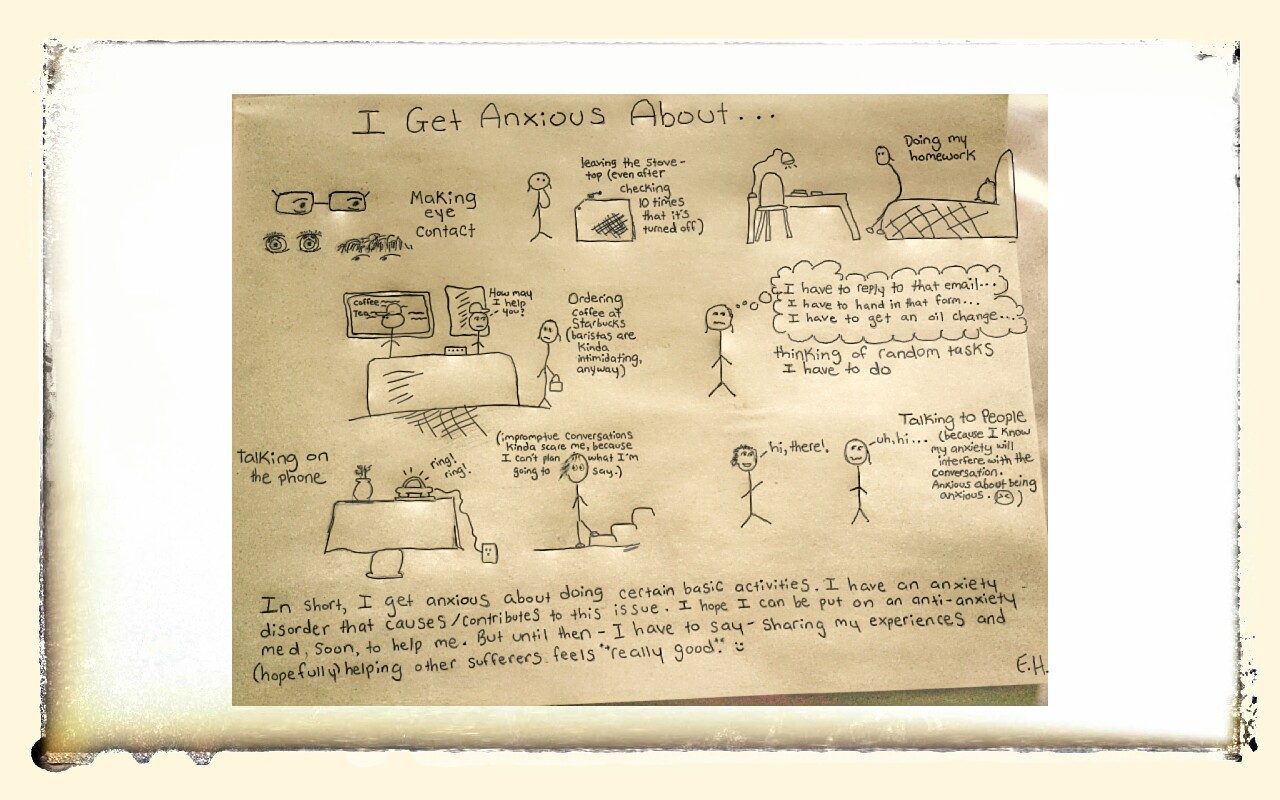 I Get Anxious About...
Making
eye
contact
leaving the stove-
top (even after
checking
10 times
that it's
turned off)
Doing my
homework
coffee
Tea
How may
I help
you?
Ordering
coffee at
Starbucks
(baristas are
kinda
intimidating,
anyway)
I have to reply to that email...
I have to hand in that form...
I have to get an oil change...
thinking of random tasks
I have to do
Talking on
the phone
ring!
ring!
(impromptue conversations
kinda scare me, because
I can't plan what I'm
going to say.)
hi, there!
uh, hi...
Talking to People
(because I know
my anxiety will
interfere with the
conversation.
Anxious about being
anxious.)
In short, I get anxious about doing certain basic activities. I have an anxiety
disorder that causes/contributes to this issue. I hope I can be put on an anti-anxiety
med, soon, to help me. But until then - I have to say - sharing my experiences and
(hopefully) helping other sufferers feels *"really good".*
E.H.